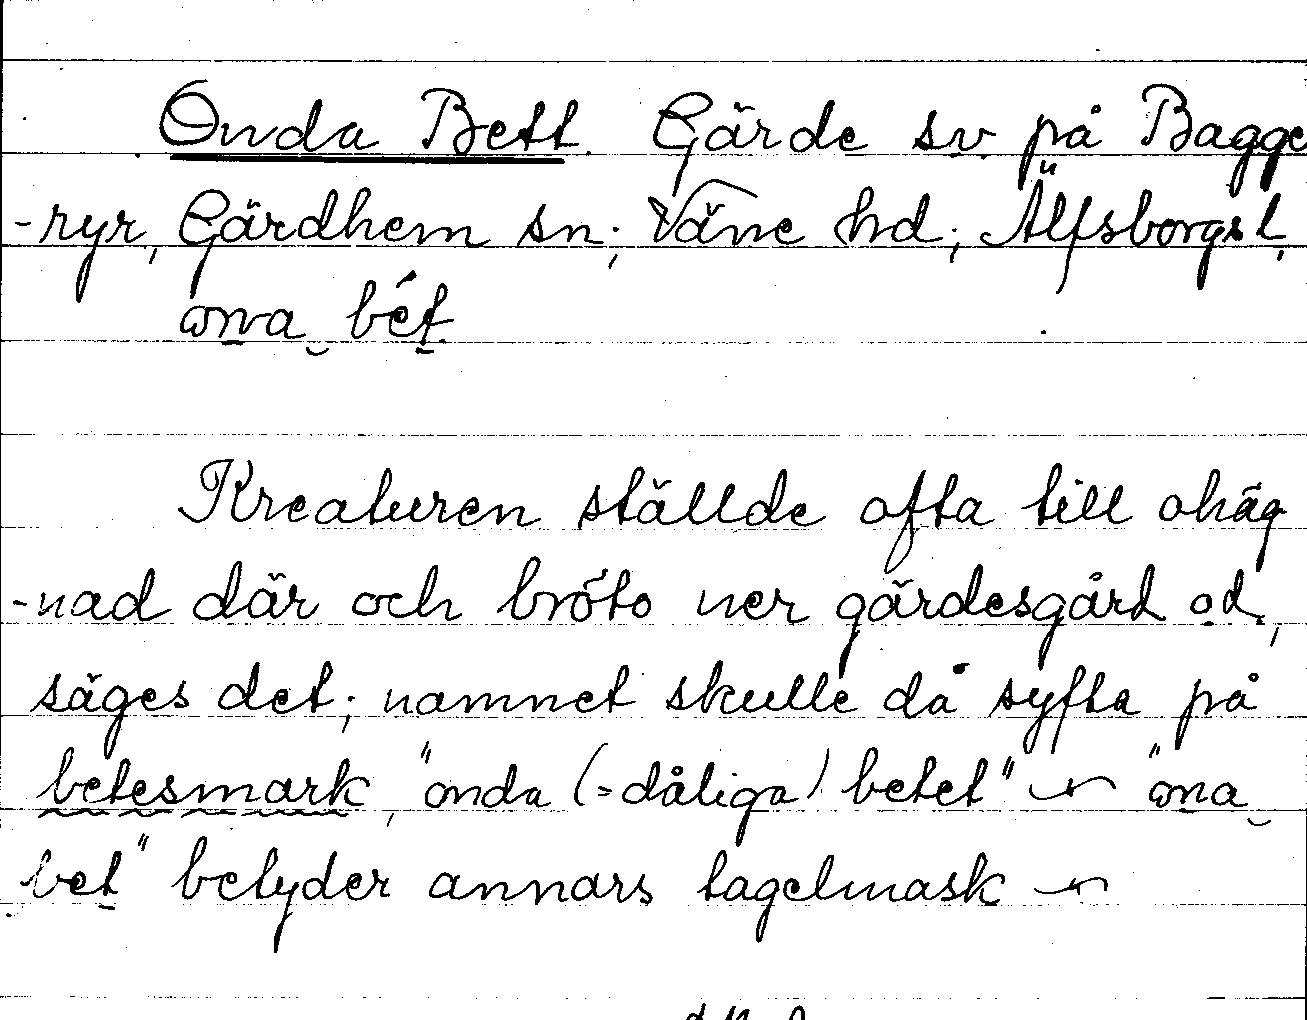 Onda Bett. Gärde sv. på Bagge
-ryr, Gärdhem sn; Väne hd; Älfsborgs l,
ωna bét.
Kreaturen ställde ofta till ohäg
-nad där och bröto ner gärdesgård o d,
säges det; namnet skulle då syfta på
betesmark, "onda (=dåliga) betet" — "ωna
bet" betyder annars tagelmask —